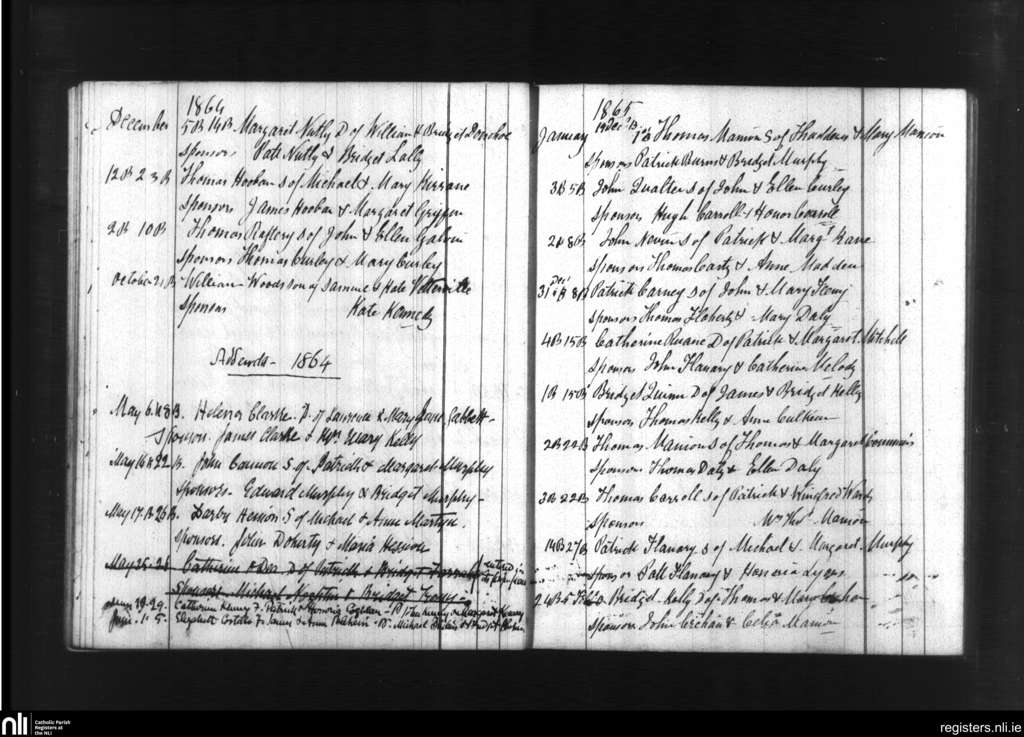 1864
December 5B 14B Margaret Nutly D of William & Bridget Donohoe
Sponsors Patt Nutly & Bridget Lally
12B 23B Thomas Hooban S of Michael & Mary Kirrane
Sponsors James Hooban & Margaret Griffin
2B 10B Thomas Raftery S of John & Ellen Galvin
Sponsors Thomas Curley & Mary Curley
October 21B William Woods son of Samuel & Kate
Sponsors Kate Kennedy
Addenda - 1864
May 6. & 8B. Helena Clarke. D. of Lawrence & Mary Jane Gablett -
Sponsors. James Clarke & Mrs Mary Kelly
May 16 & 22 B. John Connor S. of Patrick & Margaret Murphy
Sponsors - Edward Murphy & Bridget Murphy -
May 17. B 26B. Darby Hession S of Michael & Anne Martyn.
Sponsors. John Doherty & Maria Hession
May 25 - 28 Catherine D of Patrick & Bridget entered in
Sponsors Michael & Bridget
19-29. Catherine Henry F. Patrick & Honoria Coghlan - & Margaret Henry
June. 1. 5. Elizabeth Costello F. James & Anne - Michael & Bridget
1865
January 19 Decr B 1B Thomas Mannion S of Thaddeus & Mary Mannion
Sponsors Patrick Burns & Bridget Murphy
3B 5B John Qualter S of John & Ellen Curley
Sponsors Hugh Carroll & Honor Carroll
2B 8B John Nevin S of Patrick & Margt Kane
Sponsors Thomas Carty & Anne Madden
31 Decr B 8B Patrick Carney S of John & Mary Feeny
Sponsors Thomas Flaherty & Mary Daly
4B 15B Catherine Ruane D of Patrick & Margaret Mitchell
Sponsors John Flanary & Catherine Melody
1B 15B Bridget Quinn D of James & Bridget Kelly
Sponsors Thomas Kelly & Anne Culkin
2B 22B Thomas Mannion S of Thomas & Margaret Commins
Sponsors Thomas Daly & Ellen Daly
3B 22B Thomas Carroll S of Patrick & Winifred Ward
Sponsors Mrs Thos Mannion
14B 27B Patrick Flanary S of Michael & Margaret Murphy
Sponsors Patt Flanary & Honoria Lyons
24B Bridget Kelly D of Thomas & Mary
Sponsors John Crehan & Celia Mannion
nli
Catholic Parish
Registers at
the NLI
registers.nli.ie